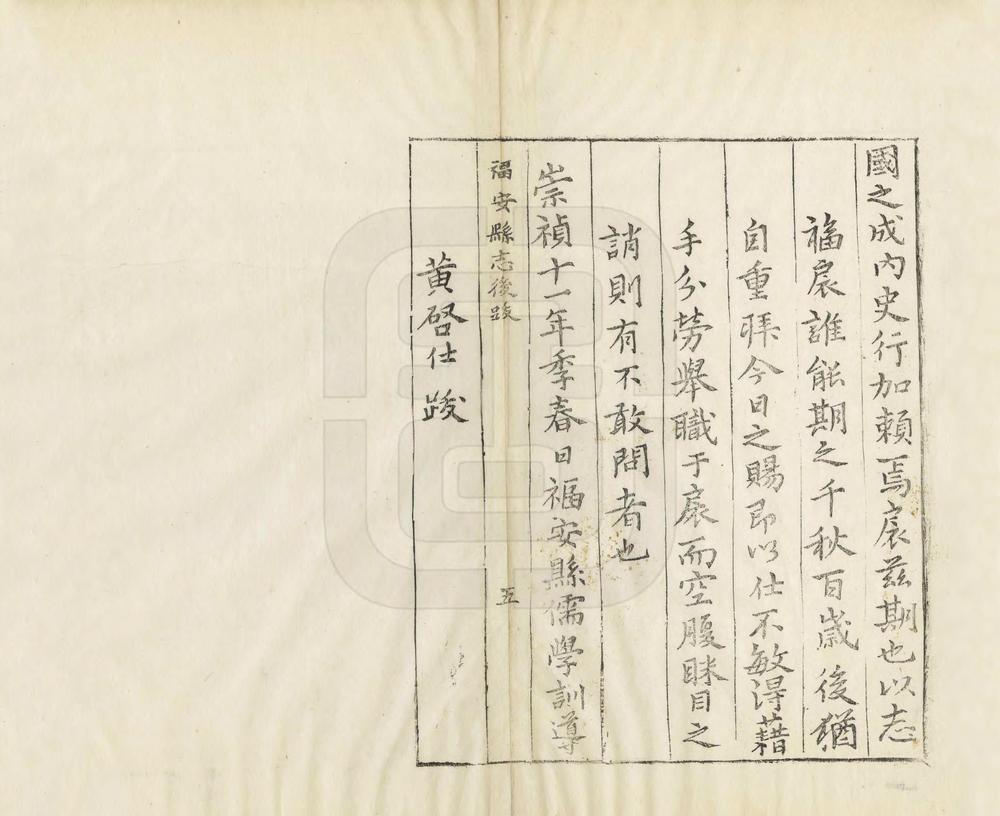 國之成內史行加賴焉扆茲期也以志
福扆誰能期之千秋百歲後猶
自重拜今日之賜即以仕不敏得藉
手分勞舉職于扆而空腹眯目之
誚則有不敢問者也
崇禎十一年季春日福安縣儒學訓導
福安縣志後跋
五
黃啓仕跋